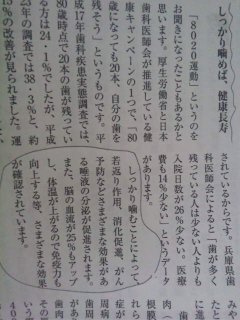 しっかり噛めば、健康長寿
「8020運動」というのを
お聞きになったこともあるかと
思います。厚生労働省と日本
歯科医師会が推進している健
康キャンペーンの1つで、「80
歳になっても20本、自分の歯を
残そう」というものです。平
成17年歯科疾患実態調査では、
80歳時点で20本の歯が残ってい
る方は24・1%でしたが、平成
23年の調査では38・3%と、約
15%の改善が見られました。運
されているからです。兵庫県歯
科医師会によると「歯が多く
残っている人は少ない人よりも
入院日数が26%少ない。医療
費も14%少ない」というデータ
があります。
しっかり噛むことによって
若返り作用、消化促進、がん
予防などさまざまな効果があ
る唾液の分泌が促進されます。
また、脳の血流が25%もアップ
し、体温が上がるので免疫力も
向上する等、さまざまな効果
が確認されています。